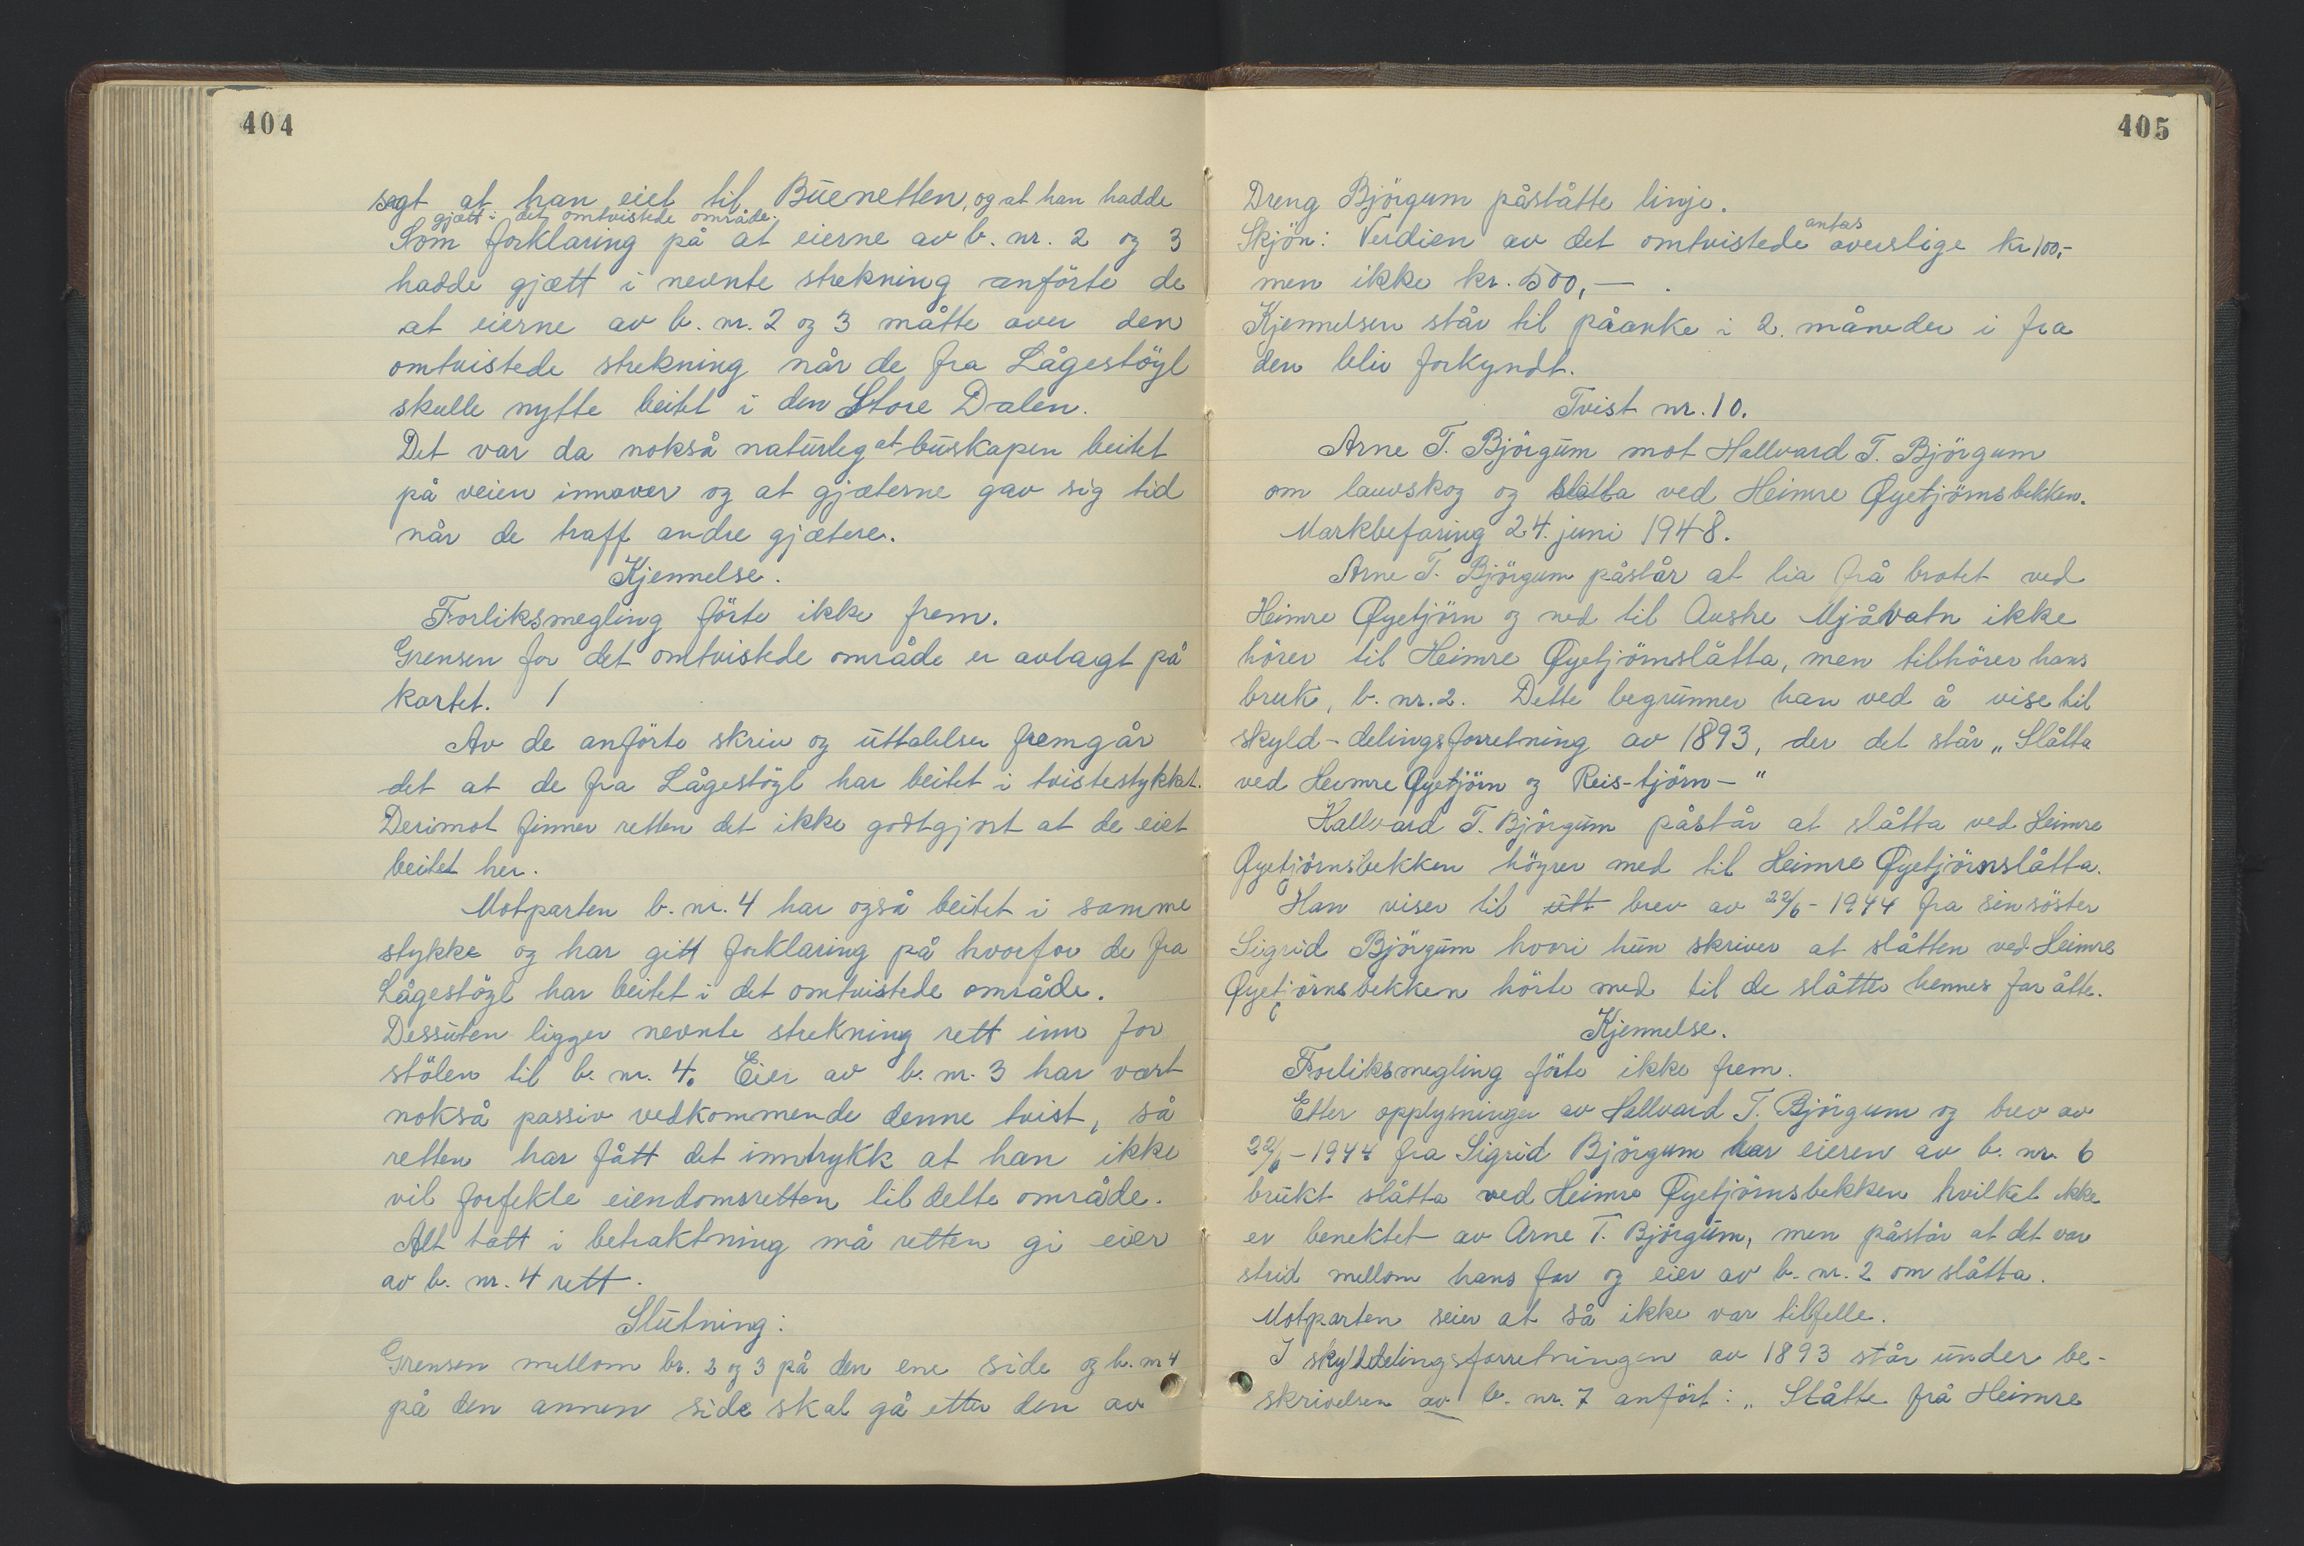 404
sagt at han eiet til Buenetten, og at han hadde
gjætt i det omtvistede område.
Som forklaring på at eierne av b. nr. 2 og 3
hadde gjætt i nevnte strekning anförte de
at eierne av b. nr. 2 og 3 måtte over den
omtvistede strekning når de fra Lågestöyl
skulle nytte beitet i den Store Dalen.
Det var da nokså naturleg at buskapen beitet
på veien innover og at gjæterne gav sig tid
når de traff andre gjætere.
Kjennelse.
Forliksmegling förte ikke frem.
Grensen for det omtvistede område er avlagt på
kartet. /
Av de anförte skriv og uttalelser fremgår
det at de fra Lågestöyl har beitet i tvistestykket.
Derimot finner retten det ikke godtgjort at de eiet
beitet her.
Motparten b. nr. 4 har også beitet i samme
stykke og har gitt forklaring på hvorfor de fra
Lågestöyl har beitet i det omtvistede område.
Dessuten ligger nevnte strekning rett inn for
stölen til b. nr. 4. Eier av b. nr. 3 har vært
nokså passiv vedkommende denne tvist, så
retten har fått det inntrykk at han ikke
vil forfekte eiendomsretten til dette område.
Alt tatt i betraktning må retten gi eier
av b. nr. 4 rett.
Slutning:
Grensen mellom br. 2 og 3 på den ene side og b. nr 4
på den annen side skal gå etter den av
405
Dreng Björgum påståtte linje.
Skjön: Verdien av det omtvistede antas overstige kr 100,-
men ikke kr. 500,— .
Kjennelsen står til påanke i 2. måneder i fra
den bliv forkyndt.
Tvist nr. 10.
Arne T. Björgum mot Hallvard T. Björgum
om lauvskog og slåtta ved Heimre Øyetjörnsbekken.
Markbefaring 24. juni 1948.
Arne T. Björgum påstår at lia frå brotet ved
Heimre Øyetjörn og ned til Austre Mjåvatn ikke
hörer til Heimre Øyetjörnslåtta, men tilhörer hans
bruk, b. nr. 2. Dette begrunner han ved å vise til
skyld-delingsforretning av 1893, der det står „Slåtta
ved Heimre Øyetjörn og Reis-tjörn — "
Hallvard T. Björgum påstår at slåtta ved Heimre
Øyetjörnsbekken höyrer med til Heimre Øyetjörnslåtta.
Han viser til utt brev av 22/6 - 1944 fra sin söster
Sigrid Björgum hvori hun skriver at slåtten ved Heimre
Øyetjörnsbekken hörte med til de slåtter hennes far åtte.
Kjennelse.
Forliksmegling förte ikke frem.
Etter opplysninger av Hallvard T. Björgum og brev av
22/6 - 1944 fra Sigrid Björgum har eieren av b. nr. 6
brukt slåtta ved Heimre Øyetjörnsbekken hvilket ikke
er benektet av Arne T. Björgum, men påstår at det var
strid mellom hans far og eier av b. nr. 2 om slåtta.
Motparten seier at så ikke var tilfelle.
I skylddelingsforretningen av 1893 står under be-
skrivelsen av b. nr. 7 anfört: „Slåtte frå Heimre